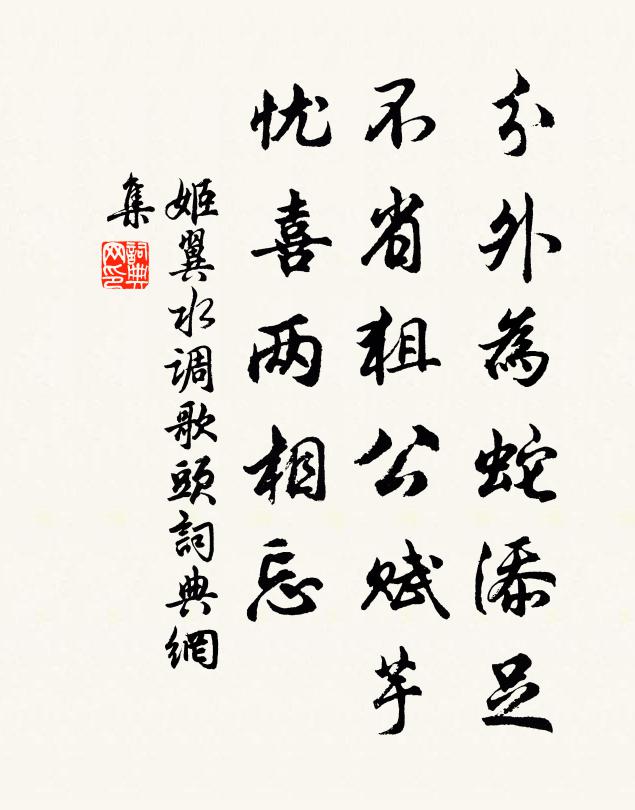 分外為蛇添足
不省狙公赋芋
忧喜两相忘
姬翼水调歌頭詞典網
集
詞典
网印